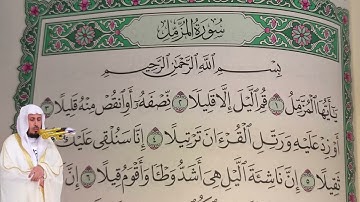 سُورَةُ المُزَّمِّلِ
بِسْمِ اللَّهِ الرَّحْمَٰنِ الرَّحِيمِ
يَا أَيُّهَا الْمُزَّمِّلُ ١ قُمِ الَّيْلَ إِلَّا قَلِيلًا ٢ نِّصْفَهُ أَوِ انقُصْ مِنْهُ قَلِيلًا ٣
أَوْ زِدْ عَلَيْهِ وَرَتِّلِ الْقُرْءَانَ تَرْتِيلًا ٤ إِنَّا سَنُلْقِى عَلَيْكَ
ثَقِيلًا ٥ إِنَّ نَاشِئَةَ الَّيْلِ هِىَ أَشَدُّ وَطْـًٔا وَأَقْوَمُ قِيلًا ٦